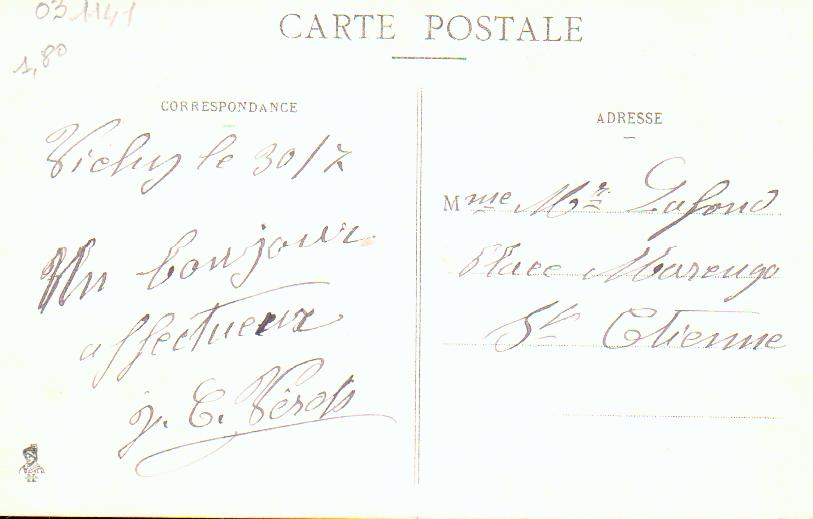 03 1141
1,80
CARTE POSTALE
CORRESPONDANCE
Vichy le 30/7
Un bonjour
affectueux
J. C.
ADRESSE
Mme Mr Lafond
Place Marengo
St Etienne